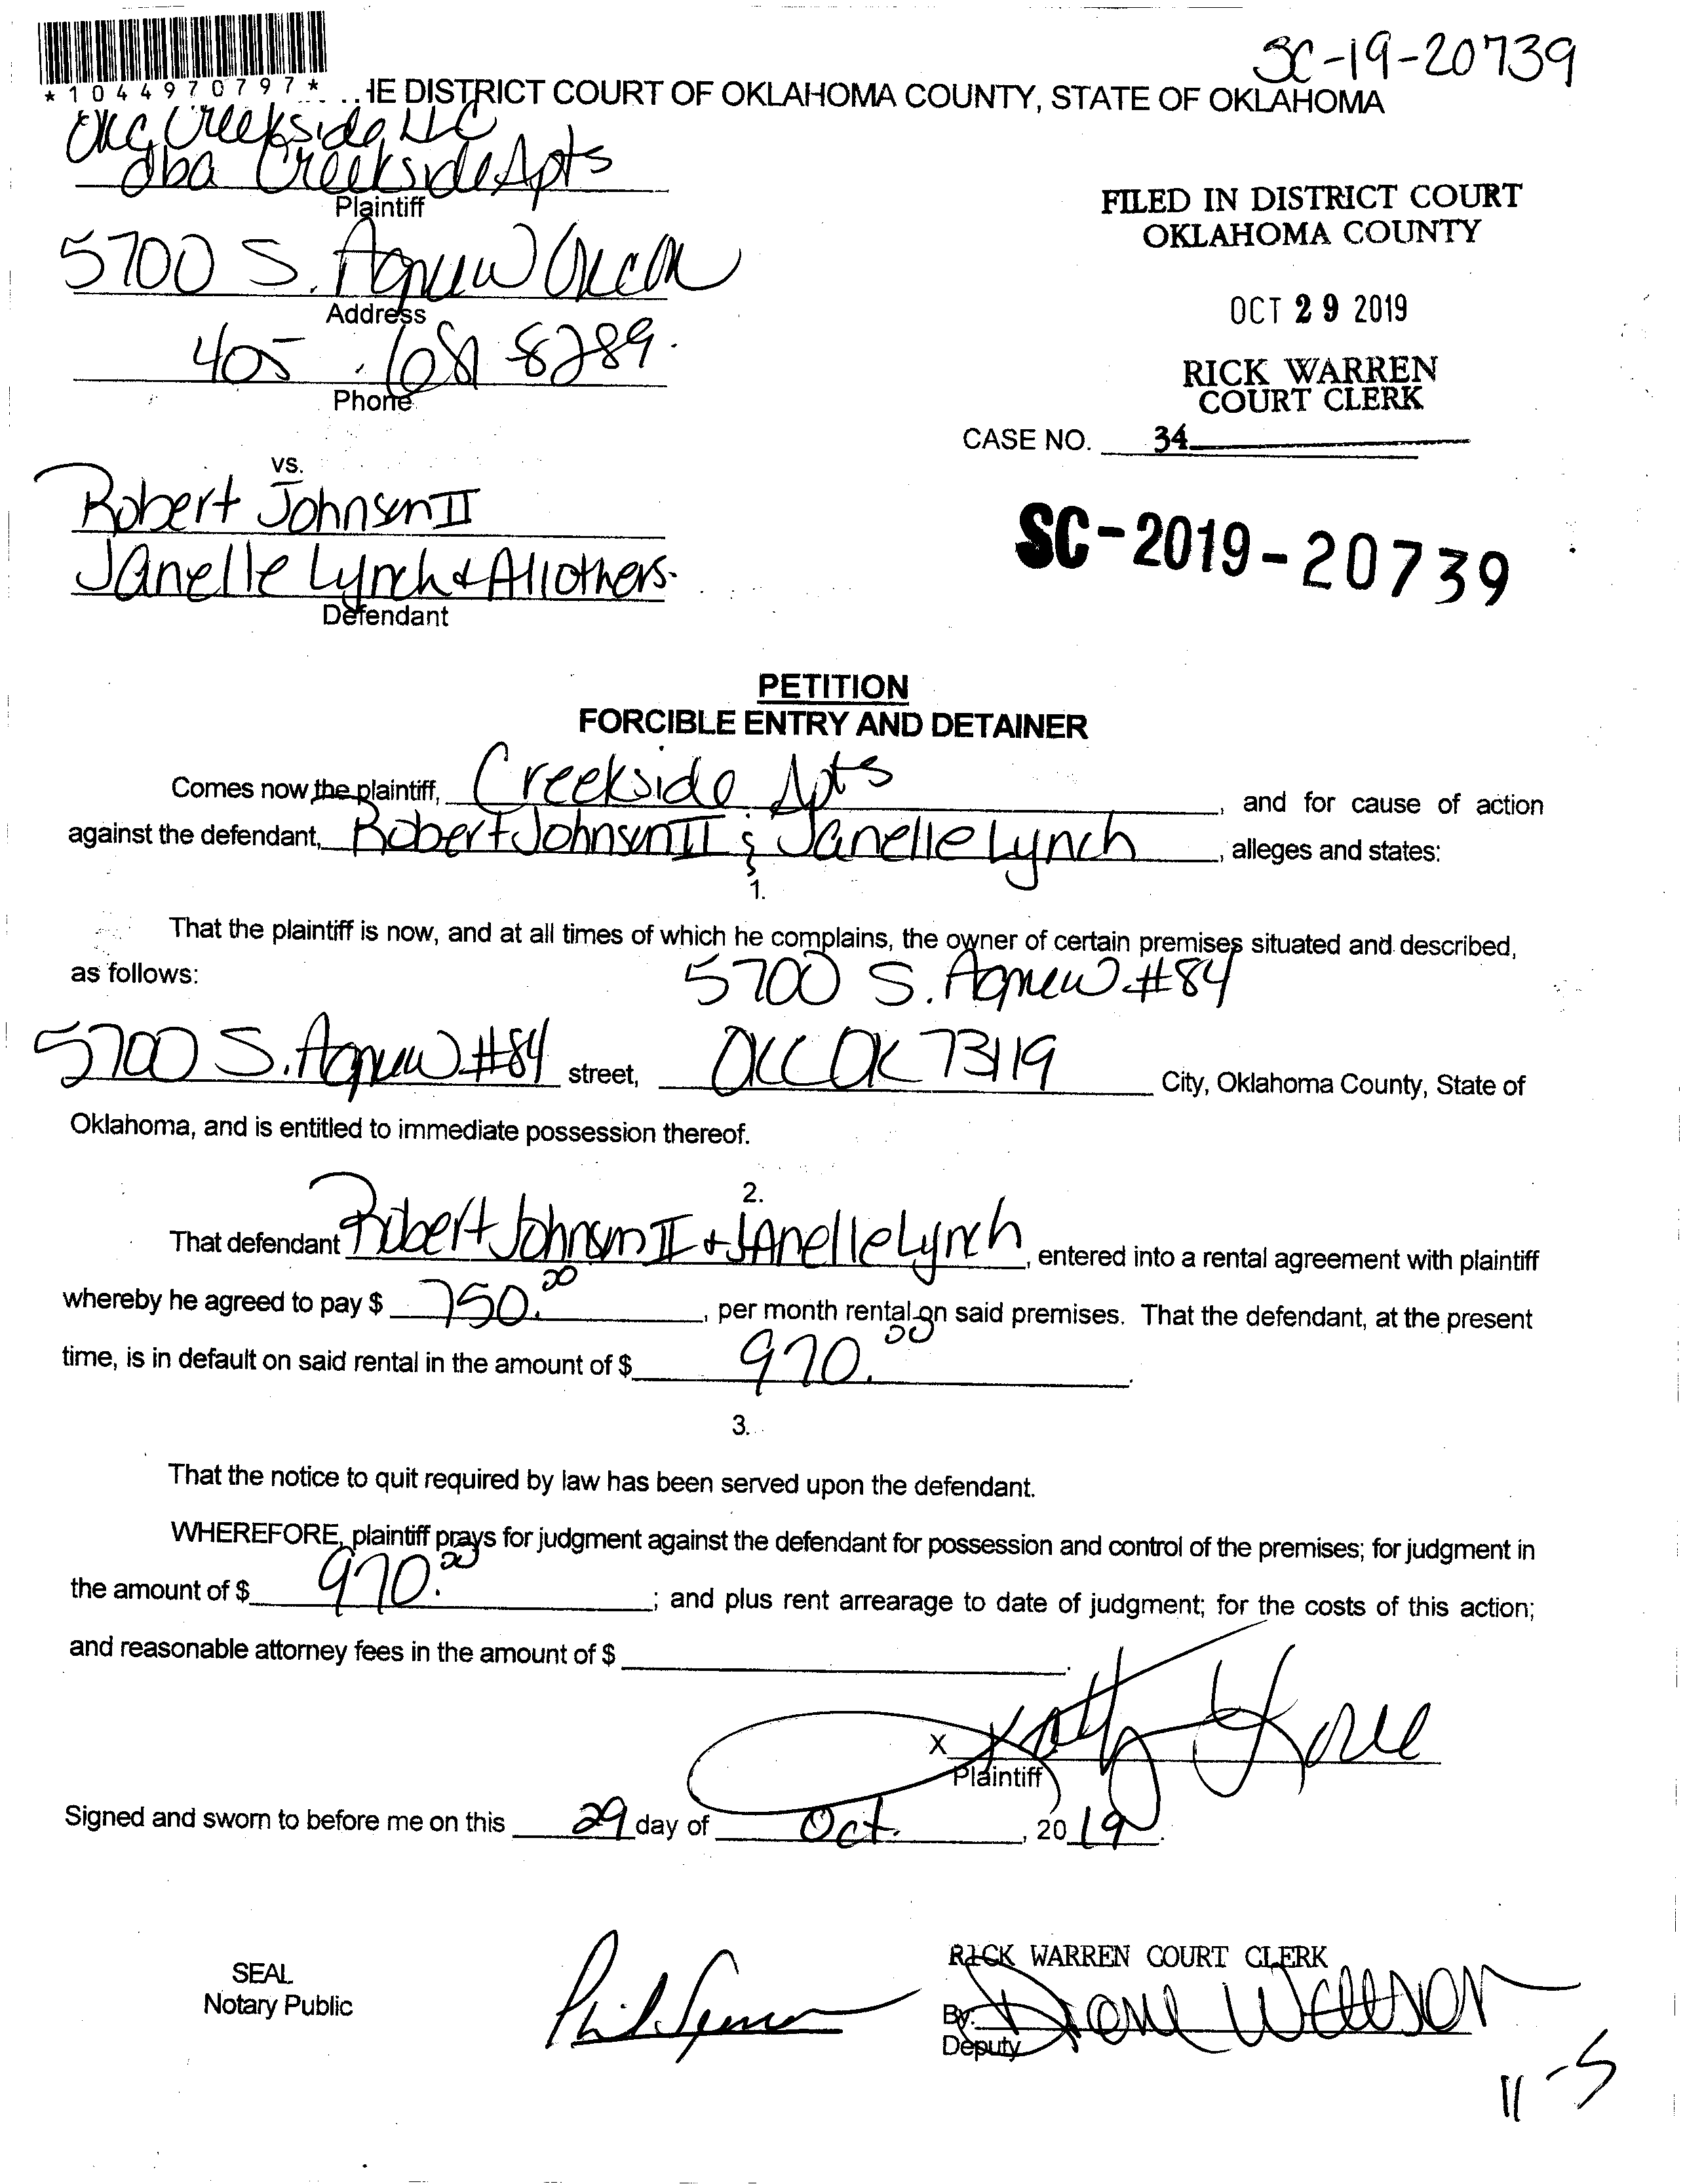 *1044970797*
SC-19-20739
HE DISTRICT COURT OF OKLAHOMA COUNTY, STATE OF OKLAHOMA
OKC Creekside LLC
dba Creekside Apts
Plaintiff
FILED IN DISTRICT COURT
OKLAHOMA COUNTY
5700 S. Agnew OKC OK
Address
OCT 29 2019
405 . 681 8289.
Phone
RICK WARREN
COURT CLERK
CASE NO. 34
vs.
Robert Johnson II
Janelle Lynch & All others.
Defendant
SC-2019-20739
PETITION
FORCIBLE ENTRY AND DETAINER
Comes now the plaintiff, Creekside Apts, and for cause of action
against the defendant, Robert Johnson II & Janelle Lynch, alleges and states:
1.
That the plaintiff is now, and at all times of which he complains, the owner of certain premises situated and described,
as follows: 5700 S. Agnew #84
5700 S. Agnew #84 street, OKC OK 73119 City, Oklahoma County, State of
Oklahoma, and is entitled to immediate possession thereof.
2.
That defendant Robert Johnson II + Janelle Lynch, entered into a rental agreement with plaintiff
whereby he agreed to pay $ 750.00, per month rental on said premises. That the defendant, at the present
time, is in default on said rental in the amount of $ 970.00.
3.
That the notice to quit required by law has been served upon the defendant.
WHEREFORE, plaintiff prays for judgment against the defendant for possession and control of the premises; for judgment in
the amount of $ 970.00; and plus rent arrearage to date of judgment; for the costs of this action;
and reasonable attorney fees in the amount of $ .
X
Plaintiff
Signed and sworn to before me on this 29 day of Oct., 2019.
SEAL
Notary Public
RICK WARREN COURT CLERK
By:
Deputy
11-5